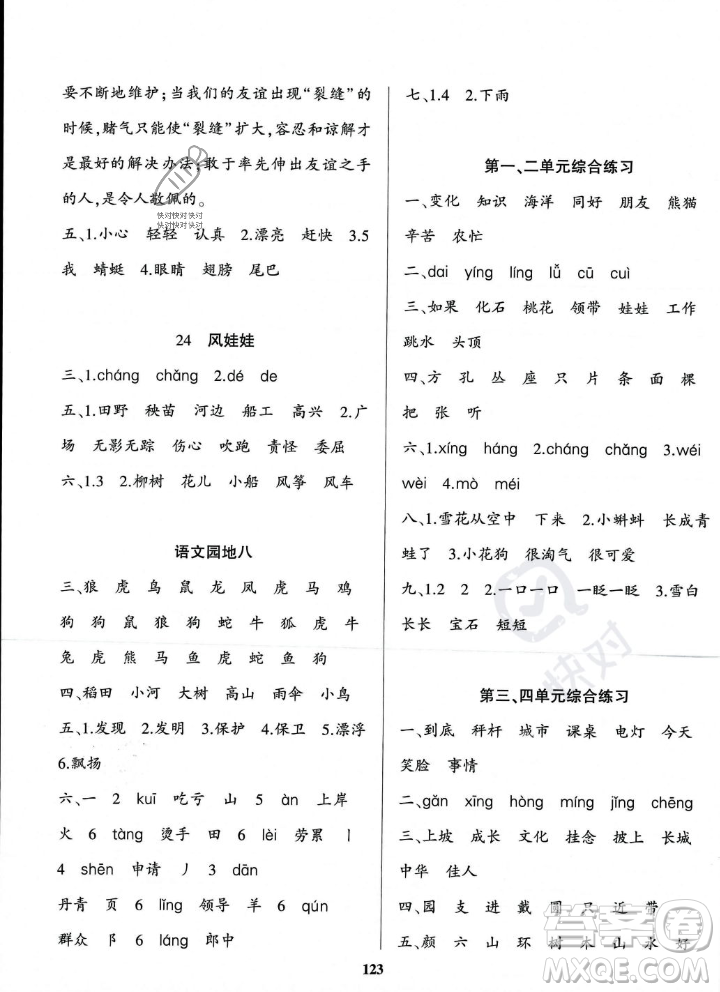 要不断地维护;当我们的友谊出现“裂缝”的
时候,赌气只能使“裂缝”扩大,容忍和谅解才
是最好的解决办法;敢于率先伸出友谊之手
的人,是令人敬佩的。
快对快对快对
快对快对快对
五、1.小心 轻轻 认真 2.漂亮 赶快 3.5
我 蜻蜓 4.眼睛 翅膀 尾巴
24 风娃娃
三、1.cháng chǎng 2.dé de
五、1.田野 秧苗 河边 船工 高兴 2.广
场 无影无踪 伤心 吹跑 责怪 委屈
六、1.3 2.柳树 花儿 小船 风筝 风车
语文园地八
三、狼 虎 鸟 鼠 龙 凤 虎 马 鸡
狗 狗 鼠 狼 狗 蛇 牛 狐 虎 牛
兔 虎 熊 马 虎 虎 蛇 鱼 狗
四、稻田 小河 大树 高山 雨伞 小鸟
五、1.发现 2.发明 3.保护 4.保卫 5.漂浮
6.飘扬
六、一 2 kuī 吃亏 山 5 àn 上岸
火 6 tàng 烫手 田 6 lèi 劳累 丨
4 shēn 申请 丿 3 dān
丹青 页 6 lǐng 领导 羊 6 qún
群众 阝 6 láng 郎中
七、1.4 2.下雨
第一、二单元综合练习
一、变化 知识 海洋 同好 朋友 熊猫
辛苦 农忙
二、dai yíng líng lǜ cū cuì
三、如果 化石 桃花 领带 娃娃 工作
跳水 头顶
四、方 孔 丛 座 只 片 条 面 棵
把 张 听
六、1.xíng háng 2.cháng chǎng 3.wéi
wèi 4.mò méi
八、1.雪花从空中 下来 2.小蝌蚪 长成青
蛙了 3.小花狗 很淘气 很可爱
九、1.2 2.一口一口 一眨一眨 3.雪白
长长 宝石 短短
快对
第三、四单元综合练习
一、到底 秤杆 城市 课桌 电灯 今天
笑脸 事情
二、gǎn xīng hòng míng jǐng chēng
三、上坡 成长 文化 挂念 披上 长城
中华 佳人
四、园 支 进 戴 圆 只 近 带
五、颜 六 山 环 树 木 山 水 好
答案圈
MXQE.COM
123